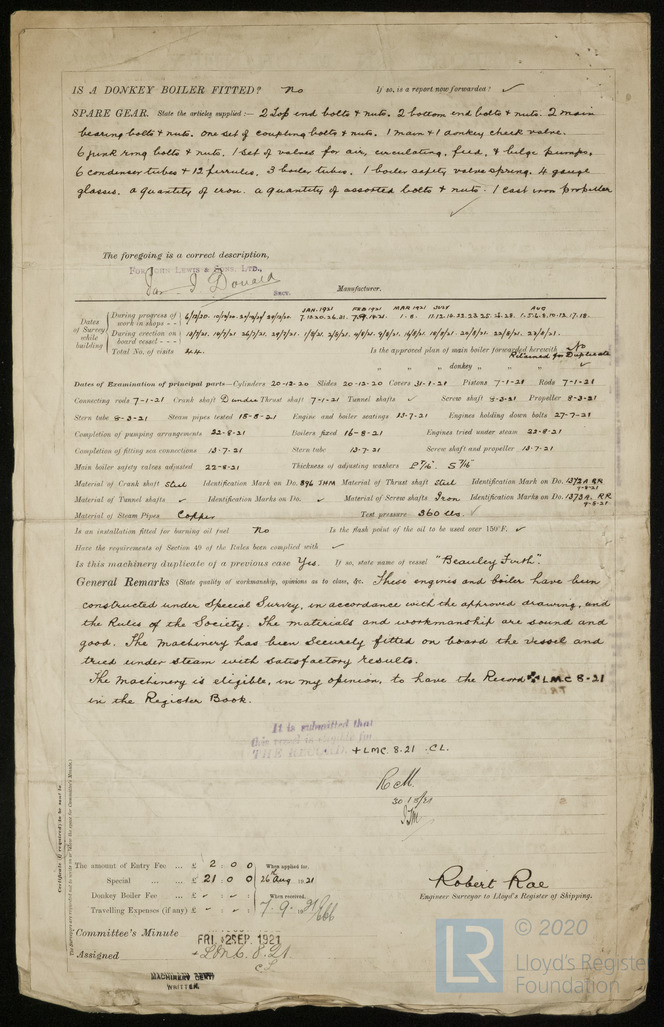 IS A DONKEY BOILER FITTED? No If so, is a report now forwarded? ✓
SPARE GEAR. State the articles supplied:— 2 Top end bolts & nuts. 2 bottom end bolts & nuts. 2 main
bearing bolts & nuts. one set of coupling bolts & nuts. 1 main & 1 donkey check valve.
6 junk ring bolts & nuts. 1 set of valves for air, circulating, feed, & bilge pumps,
6 condenser tubes & 12 ferrules. 3 boiler tubes. 1 boiler safety valve spring. 4 gauge
glasses. a quantity of iron. a quantity of assorted bolts & nuts. 1 cast iron propeller
✓
The foregoing is a correct description,
FOR JOHN LEWIS & SONS, LTD.,
Donald
Secy. Manufacturer.
Dates of Survey while building
JAN. 1921 FEB 1921 MAR 1921 JULY AUG
During progress of work in shops - -
During erection on board vessel - - -
Total No. of visits 44. Is the approved plan of main boiler forwarded herewith No
Retained for Duplicate
" " donkey " " " ✓
Dates of Examination of principal parts—Cylinders 20-12-20 Slides 20-12-20 Covers 31-1-21 Pistons 7-1-21 Rods 7-1-21
Connecting rods 7-1-21 Crank shaft Dundee Thrust shaft 7-1-21 Tunnel shafts ✓ Screw shaft 8-3-21 Propeller 8-3-21
Stern tube 8-3-21 Steam pipes tested 15-8-21 Engine and boiler seatings 13-7-21 Engines holding down bolts 27-7-21
Completion of pumping arrangements 22-8-21 Boilers fixed 16-8-21 Engines tried under steam 22-8-21
Completion of fitting sea connections 13-7-21 Stern tube 13-7-21 Screw shaft and propeller 13-7-21
Main boiler safety valves adjusted 22-8-21 Thickness of adjusting washers P 7/16" S 7/16"
Material of Crank shaft Steel Identification Mark on Do. 896 JHM Material of Thrust shaft Steel Identification Mark on Do. 1372A RR
Material of Tunnel shafts ✓ Identification Marks on Do. ✓ Material of Screw shafts Iron Identification Marks on Do. 1373A. RR
Material of Steam Pipes Copper Test pressure 360 lbs. ✓
Is an installation fitted for burning oil fuel No Is the flash point of the oil to be used over 150°F. ✓
Have the requirements of Section 49 of the Rules been complied with ✓
Is this machinery duplicate of a previous case Yes. If so, state name of vessel "Beauley Firth".
General Remarks (State quality of workmanship, opinions as to class, &c. These engines and boiler have been
constructed under Special Survey, in accordance with the approved drawing, and
the Rules of the Society. The materials and workmanship are sound and
good. The machinery has been securely fitted on board the vessel and
tried under steam with satisfactory results.
The machinery is eligible, in my opinion, to have the Record ✠ LMC 8-21
in the Register Book.
It is submitted that
this vessel is eligible for
THE RECORD. + LMC. 8.21. CL.
The amount of Entry Fee ... £ 2 : 0 : 0 When applied for,
Special ... £ 21 : 0 : 0 26th Aug 1921
Donkey Boiler Fee ... £ - : - : - When received,
Travelling Expenses (if any) £ - : - : - 7.9.1921
Robert Rae
Engineer Surveyor to Lloyd's Register of Shipping.
Committee's Minute FRI. 2 SEP. 1921
Assigned + LMC. 8.21
C.L.
MACHINERY CERT.
WRITTEN.
Certificate (if required) to be sent to
© 2020
LR
Lloyd's Register
Foundation